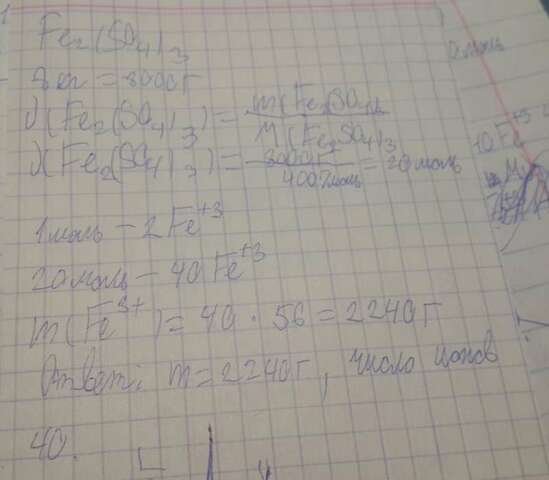 Fe₂(SO₄)₃
8 кг = 8000 г
ν(Fe₂(SO₄)₃) = m(Fe₂(SO₄)₃ / M(Fe₂(SO₄)₃
ν(Fe₂(SO₄)₃) = 8000г / 400г/моль = 20 моль
1 моль – 2Fe⁺³
20 моль – 40Fe⁺³
m(Fe³⁺) = 40 · 56 = 2240 г
Ответ: m = 2240г, число ионов
40.